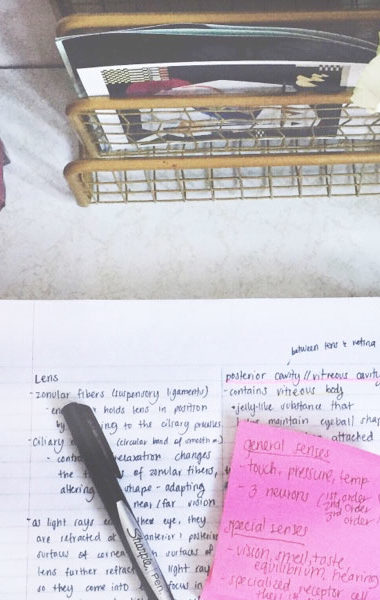 between lens & retina
Lens
- zonular fibers (suspensory ligaments)
holds lens in position
by to the ciliary process
- Ciliary (circular band of smooth m.)
- relaxation changes
the of zonular fibers,
altering shape - adapting
near/far vision
- as light rays these eye, they
are refracted anterior & posterior
surfaces of cornea surfaces of
lens further refract light ray
so they come into focus in
posterior cavity // vitreous cavity
- contains vitreous body
• jelly-like substance that
maintain eyeball shape
attached
general senses
- touch, pressure, temp
- 3 neurons (1st order
2nd order
3rd order
special senses
- vision, smell, taste,
equilibrium, hearing
- specialized receptor cell
Sharpie. Pen